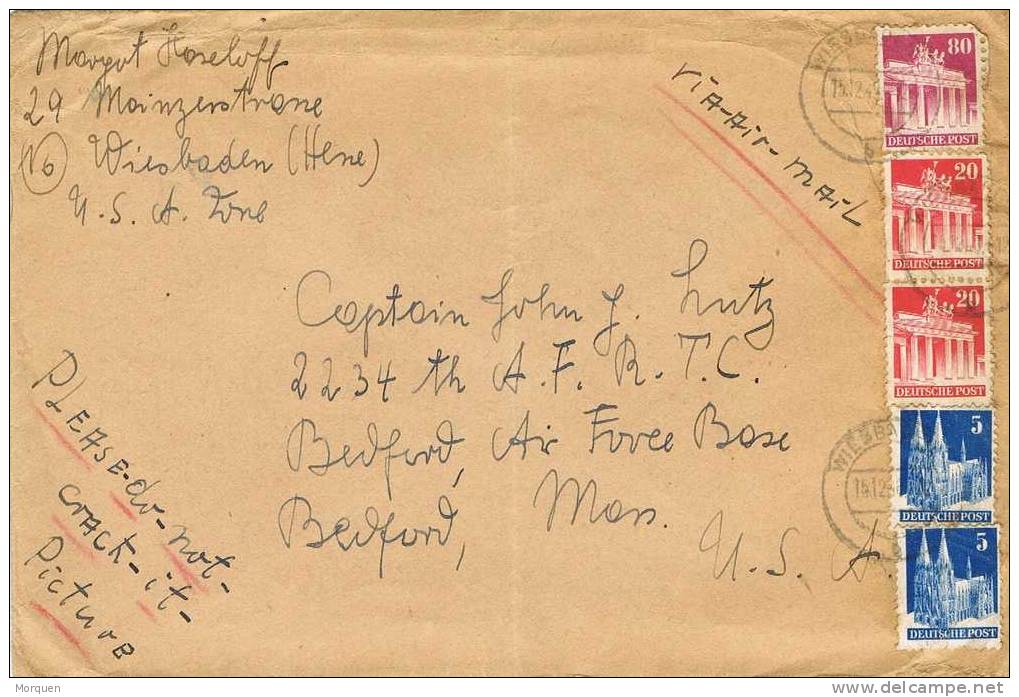 Margot Haseloff
29 Mainzerstrasse
(16) Wiesbaden (Hesse)
U.S.A. Zone
via-Air-Mail
Captain John J. Lutz
2234 th A.F.R.T.C.
Bedford, Air Force Base
Bedford, Mass.
U.S.A.
PLEASE-do-not-
crack-it-
Picture
80
DEUTSCHE POST
20
DEUTSCHE POST
20
DEUTSCHE POST
5
DEUTSCHE POST
5
DEUTSCHE POST
Morquen
www.delcampe.net